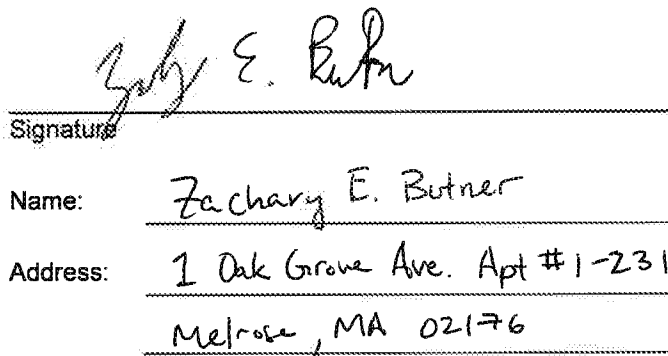 Zachary E. Butner
Signature
Name: Zachary E. Butner
Address: 1 Oak Grove Ave. Apt #1-231
Melrose, MA 02176